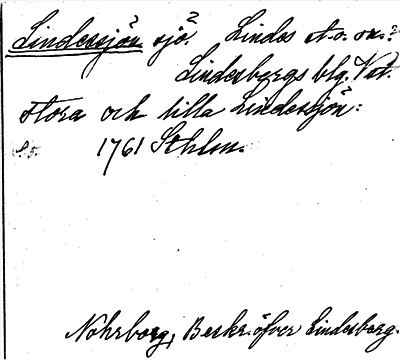 Lindessjön sjö? Lindes sn.?
Lindesbergs blg. Vstl.
Stora och lilla Lindessjön:
1761 Sthlm.
Nohrborg, Beskr. öfver Lindesberg.